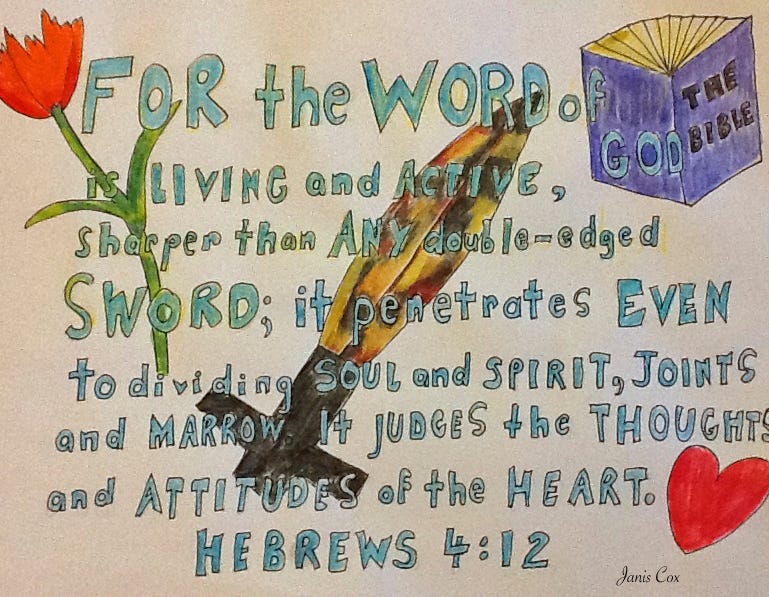 FOR the WORD of
GOD
THE
BIBLE
is LIVING and ACTIVE,
sharper than ANY double-edged
SWORD; it penetrates EVEN
to dividing SOUL and SPIRIT, JOINTS
and MARROW. It JUDGES the THOUGHTS
and ATTITUDES of the HEART.
HEBREWS 4:12
Janis Cox